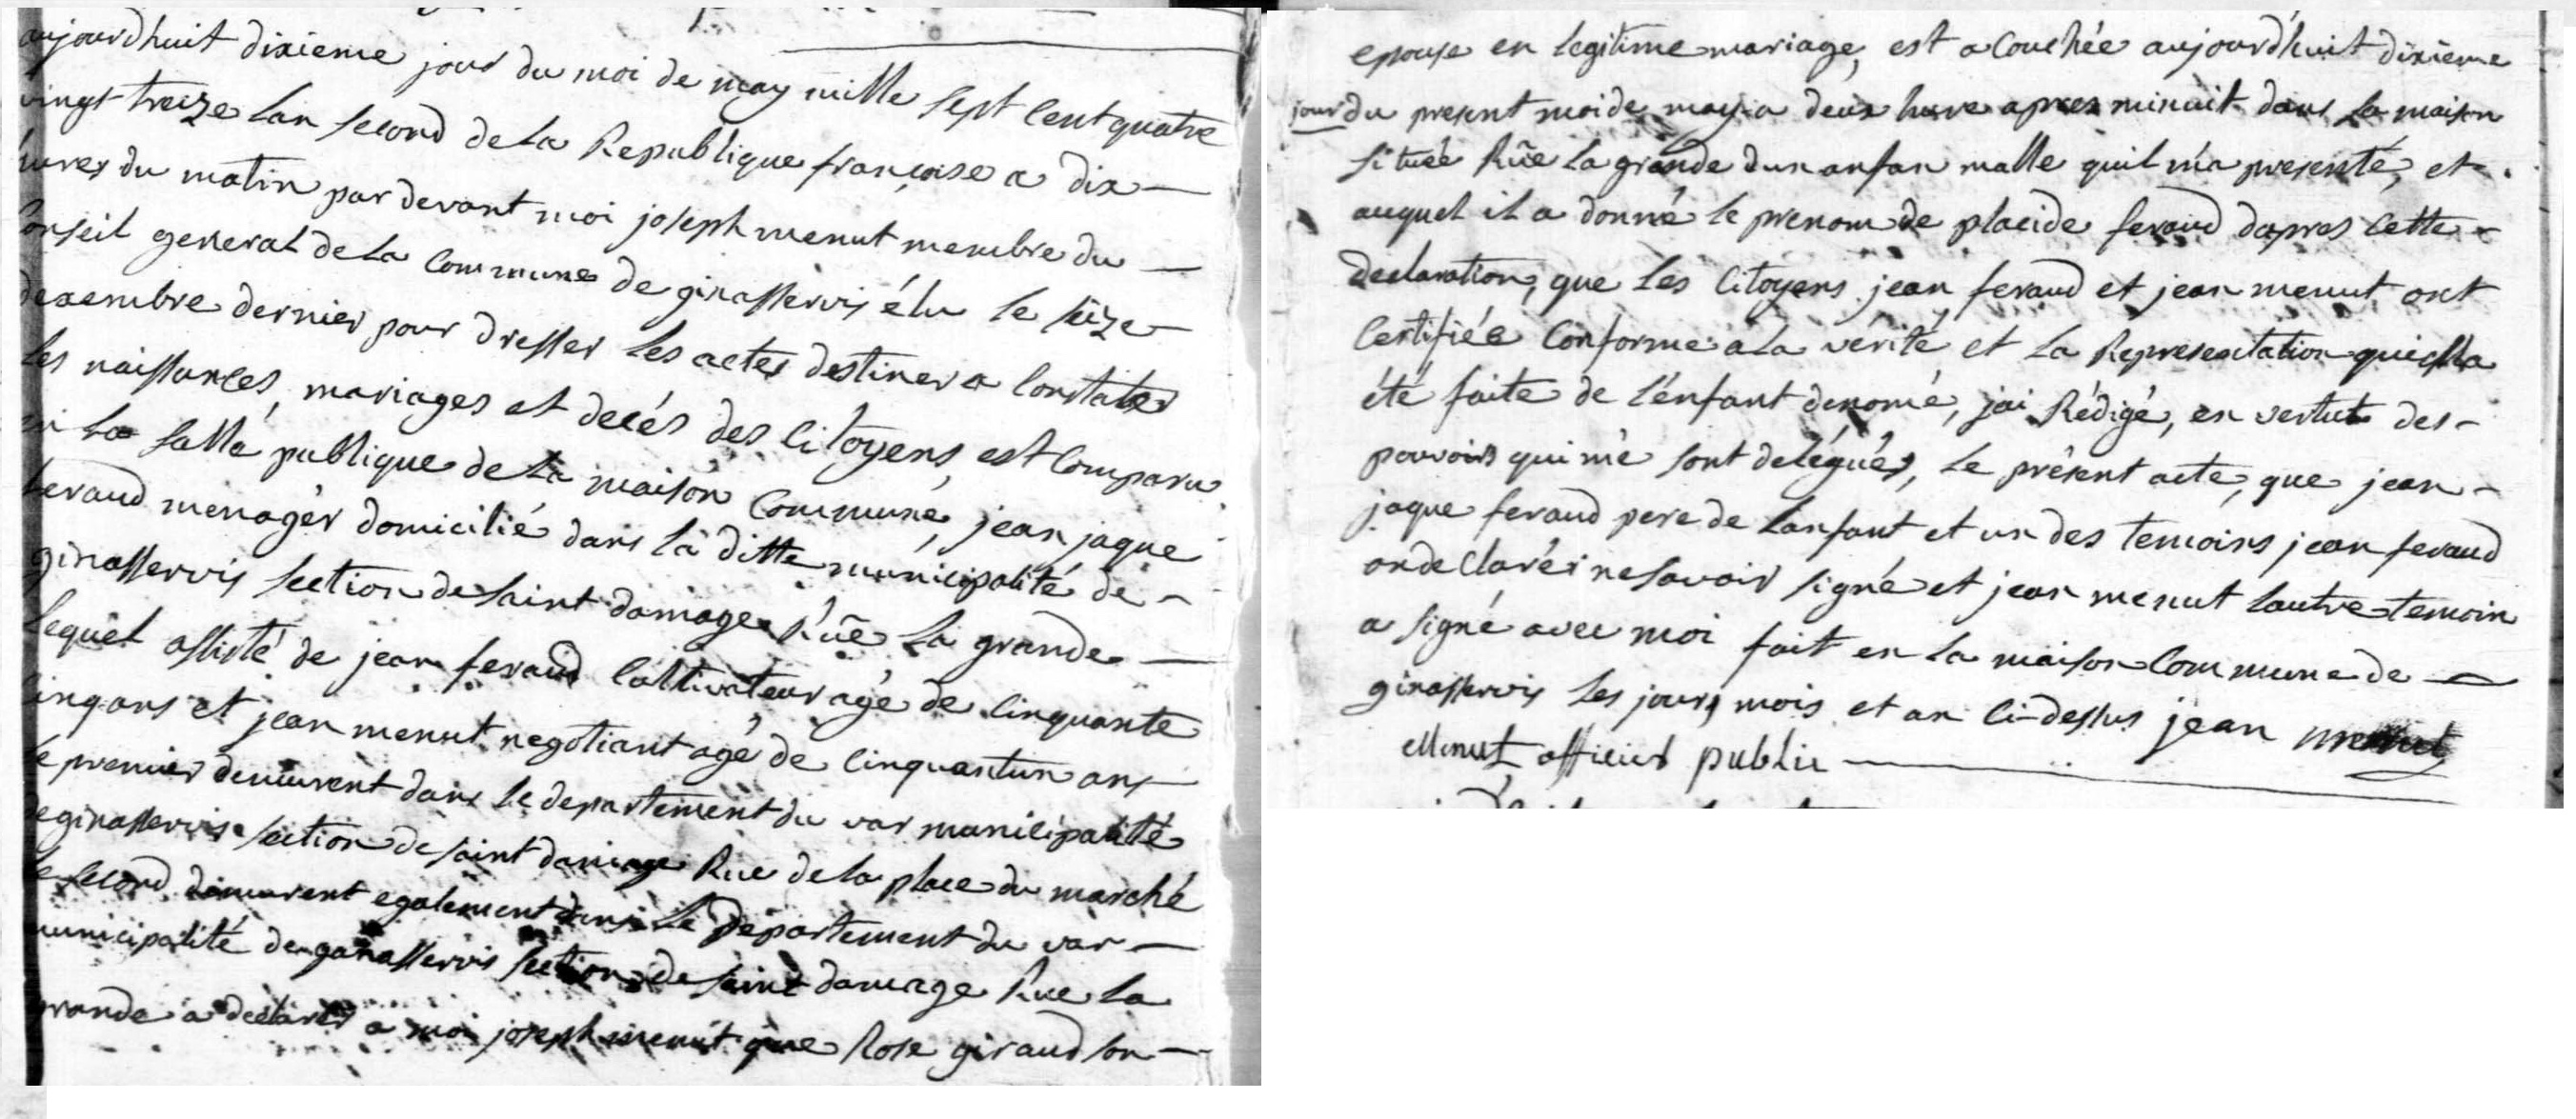 aujourdhuit dixieme jour du moi de may mille sept cent quatre
vingt treize lan second de la Republique françoise a dix
hures du matin par devant moi joseph menut membre du
Conseil general de la Commune de ginasservis élu le seize
dexembre dernier pour dresser les actes destiner a Constater
les naissances, mariages et decés des Citoyens, est Comparu
en la salle publique de la maison Commune, jean jaque
feraud menager domicilié dans la ditte municipalité de
ginasservis section de saint damage Rue la grande
lequel assisté de jean feraud Coltivateur agé de Cinquante
cinq ans et jean menut negotiant agé de Cinquantun ans
le premier demeurent dans le departement du var municipalité
de ginasservis section de saint damage Rue de la place du marché
le second demeurent egalement dans le Departement du var
municipalité de ginasservis section de saint damage Rue la
grande a declarer a moi joseph menut que Rose giraud son
epouse en legitime mariage, est acouchée aujourd'huit dixieme
jour du present moi de may a deux hure apres minuit dans sa maison
située Rue la grande dun anfan malle quil m'a presenté, et
auquel il a donné le prenom de placide feraud dapres cette
declaration, que les Citoyens jean feraud et jean menut ont
Certifiée Conforme a la vérité et la Representation qui
été faite de l'énfant denomé, jai Rédigé, en vertut des
pouvoirs qui me sont delégués, le présent acte, que jean
jaque feraud pere de lanfant et un des temoins jean feraud
on declarér ne savoir signé et jean menut lautre temoin
a signé avec moi fait en la maison Commune de
ginasservis les jours, mois et an Ci-dessus jean menut
Menut officier public